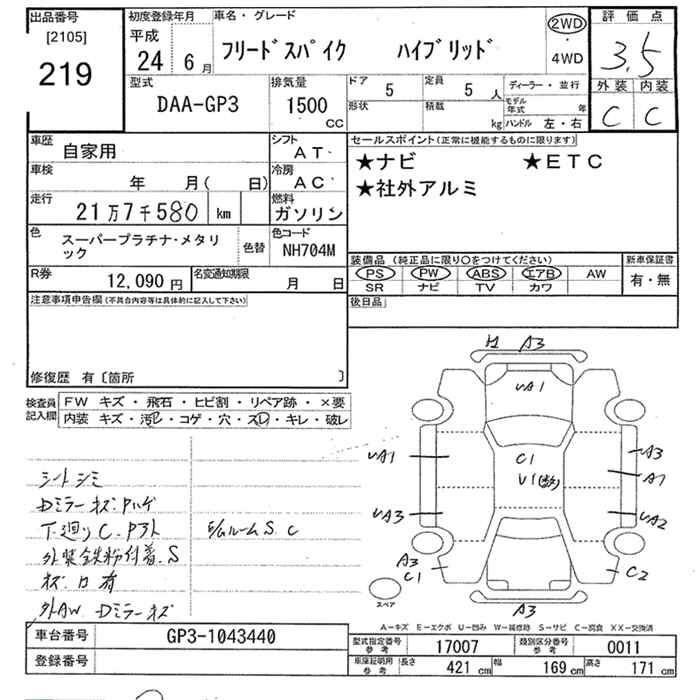 出品番号
[2105]
219
初度登録年月
平成
24 6 月
車名・グレード
フリードスパイク ハイブリッド
2WD
4WD
評価点
3.5
外装 内装
C C
型式
DAA-GP3
排気量
1500
CC
ドア 5
形状
定員 5 人
積載 kg
ディーラー・並行
モデル年式 年
ハンドル 左・右
車歴
自家用
シフト
AT
車検
年 月( 日)
冷房
AC
走行
21万7千580 km
燃料
ガソリン
色
スーパープラチナ・メタリ
ック
色替
色コード
NH704M
R券
12,090 円
名変通知期限
月 日
セールスポイント(正常に機能するものに限ります)
★ナビ ★ETC
★社外アルミ
装備品(純正品に限り○をつけてください)
PS PW ABS エアB AW
SR ナビ TV カワ
新車保証書
有・無
後日品
注意事項申告欄(不具合内容等は具体的に記入して下さい)
修復歴 有〔箇所 〕
検査員
記入欄
FW キズ・飛石・ヒビ割・リペア跡・×要
内装 キズ・汚レ・コゲ・穴・スレ・キレ・破レ
シートシミ
Dミラーキズ.Pハゲ
下廻りC.P外
外装鉄粉付着.S
キズ.凹有
外AW Dミラーキズ
E/GルームS.C
A3
UA1
C1
U1
UA1
UA3
A3
C1
A3
A1
UA2
C2
A3
スペア
A－キズ E－エクボ U－凹み W－補修跡 S－サビ C－腐食 XX－交換済
車台番号
GP3-1043440
登録番号
型式指定番号
参考
17007
類別区分番号
参考
0011
車庫証明用
参考
長さ 421 cm
幅 169 cm
高さ 171 cm